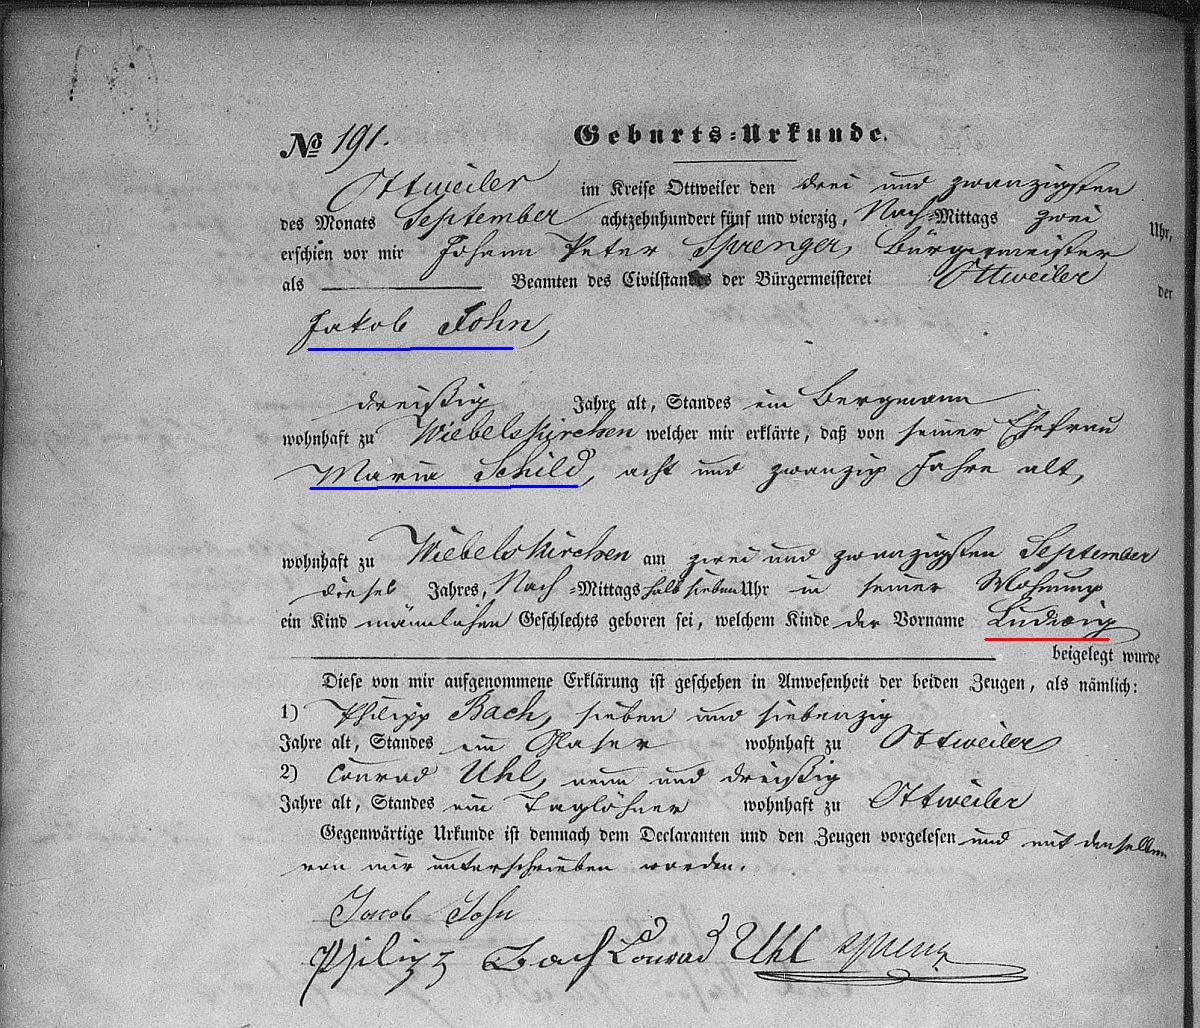 № 191. Geburts-Urkunde.
Ottweiler im Kreise Ottweiler den drei und zwanzigsten
des Monats September achtzehnhundert fünf und vierzig, Nach-Mittags zwei Uhr,
erschien vor mir Johann Peter Sprenger, Bürgermeister
als Beamten des Civilstandes der Bürgermeisterei Ottweiler der
Jakob John,
dreißig Jahre alt, Standes ein Bergmann
wohnhaft zu Wiebelskirchen welcher mir erklärte, daß von seiner Ehefrau
Maria Schild, acht und zwanzig Jahre alt,
wohnhaft zu Wiebelskirchen am zwei und zwanzigsten September
dieses Jahres, Nach-Mittags halb sieben Uhr in seiner Wohnung
ein Kind männlichen Geschlechts geboren sei, welchem Kinde der Vorname Ludwig
beigelegt wurde
Diese von mir aufgenommene Erklärung ist geschehen in Anwesenheit der beiden Zeugen, als nämlich:
1) Philipp Bach, sieben und siebenzig
Jahre alt, Standes ein Glaser wohnhaft zu Ottweiler
2) Conrad Uhl, neun und dreißig
Jahre alt, Standes ein Taglöhner wohnhaft zu Ottweiler
Gegenwärtige Urkunde ist demnach dem Declaranten und den Zeugen vorgelesen und mit denselben
von mir unterschrieben worden.
Jacob John
Philipp Bach Conrad Uhl